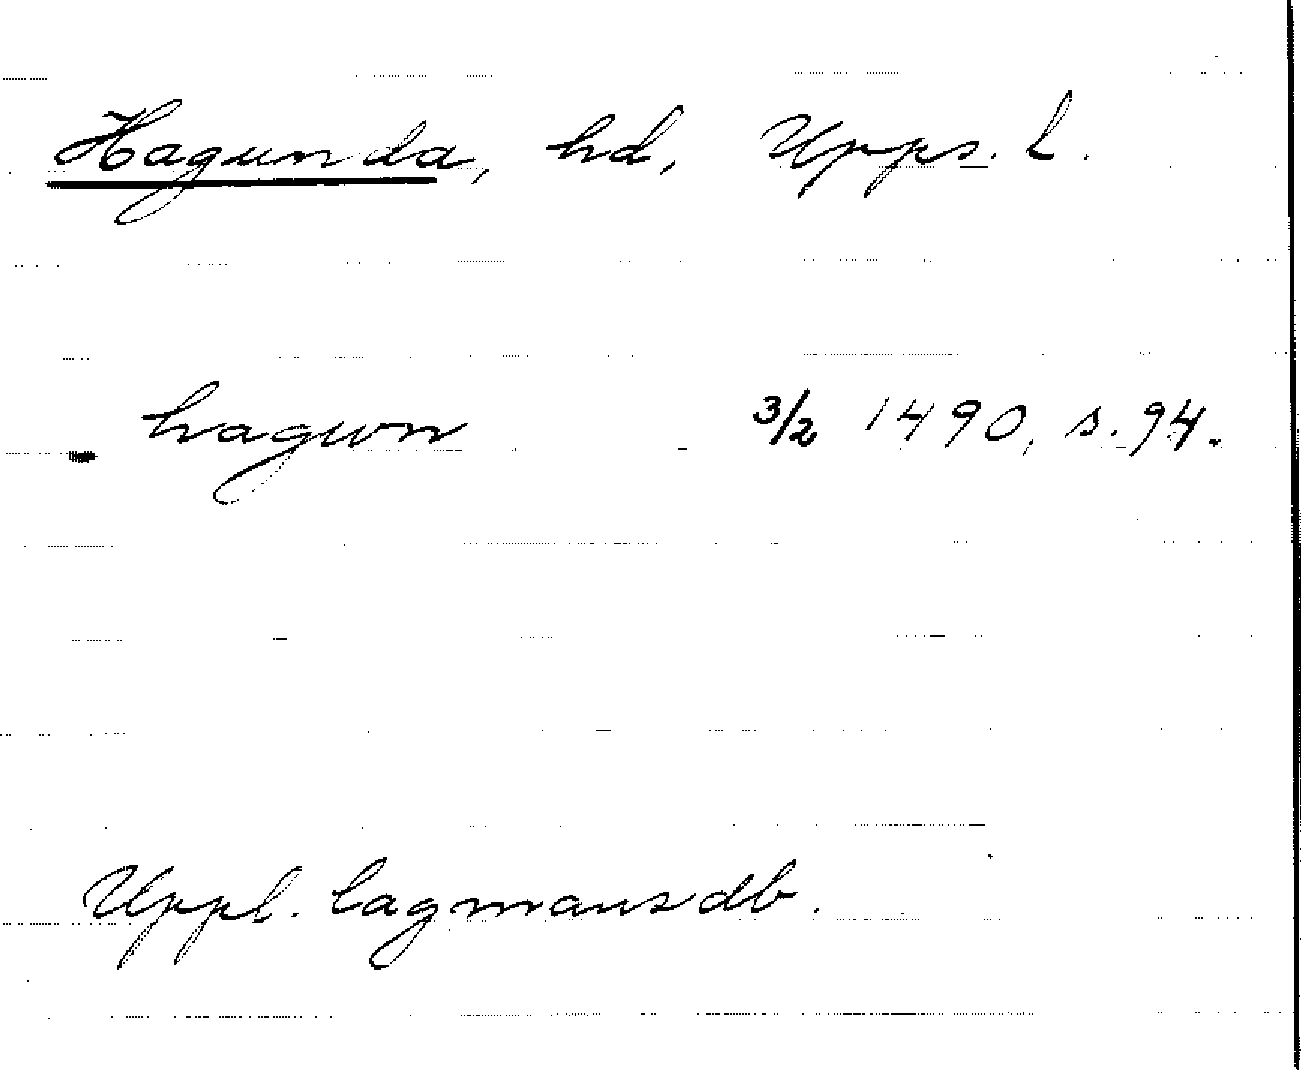 Hagunda, hd, Upps. l.
hagwn 3/2 1490, s. 94.
Uppl. lagmansdb.